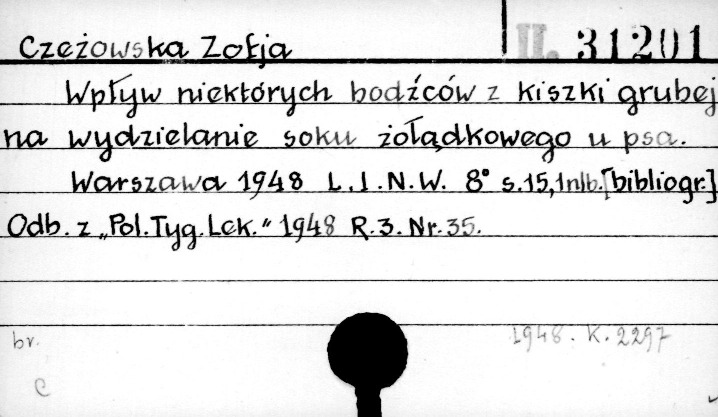 Czeżowska Zofja II. 31201
Wpływ niektórych bodźców z kiszki grubej
na wydzielanie soku żołądkowego u psa.
Warszawa 1948 L.I.N.W. 8° s.15,1nlb.[bibliogr.]
Odb. z „Pol.Tyg.Lek.“ 1948 R.3. Nr.35.
br. 1948. K. 2297
C